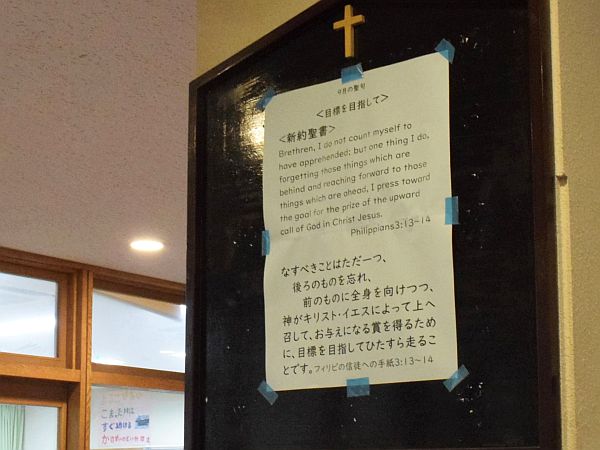 9月の聖句
＜目標を目指して＞
＜新約聖書＞
Brethren, I do not count myself to
have apprehended; but one thing I do,
forgetting those things which are
behind and reaching forward to those
things which are ahead, I press toward
the goal for the prize of the upward
call of God in Christ Jesus.
Philippians3:13~14
なすべきことはただ一つ、
後ろのものを忘れ、
前のものに全身を向けつつ、
神がキリスト・イエスによって上へ
召して、お与えになる賞を得るため
に、目標を目指してひたすら走るこ
とです。フィリピの信徒への手紙3:13~14
こまった時は
すぐ助ける